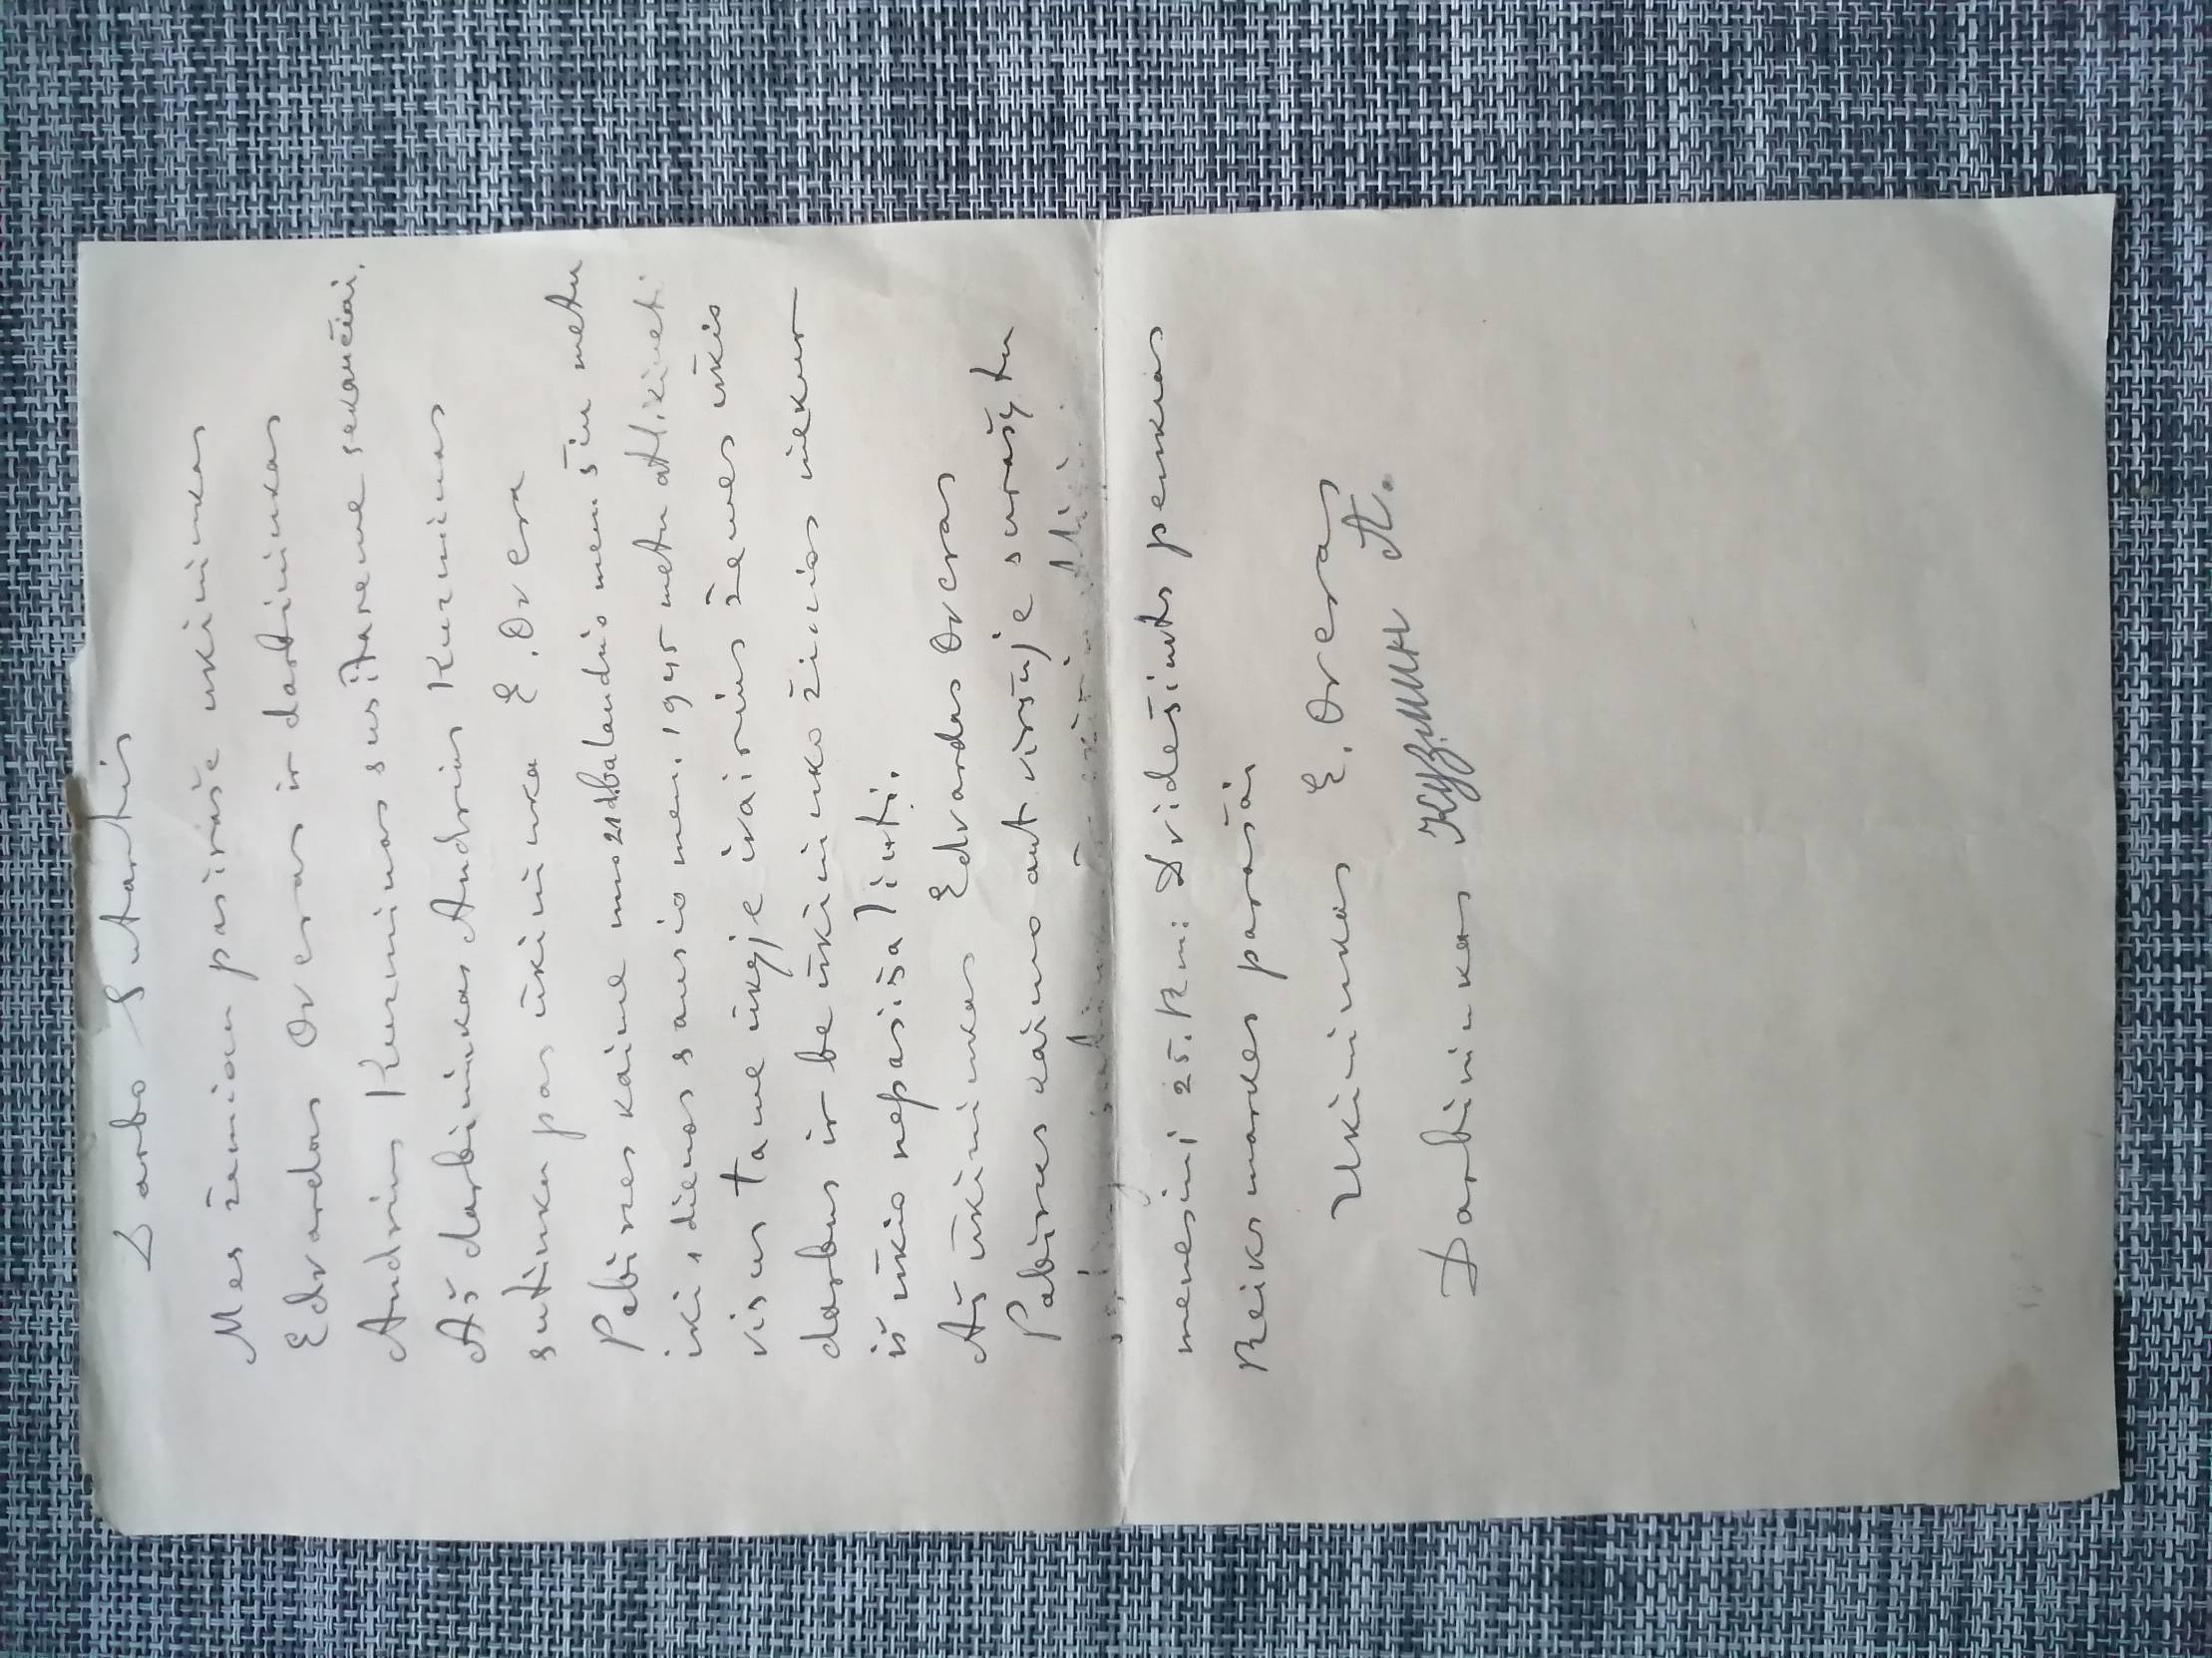 Darbo Sutartis
Mes žamiau pasirašę ukininkas
Edvardas Overas ir darbininkas
Andrius Kuzminas susitarеme sekančiai.
Aš darbininkas Andrius Kuzminas
sutinku pas ūkininka E. Overa
Pabirvės kaime nuo 21 d. balandžio men. šiu metu
iki 1 dienos sausio men. 1945 metu atlikineti
visus tame ūkyje ivairius žemes ūkio
darbus ir be ūkininko žinios niekur
iš ūkio nepasišalinti.
Aš ūkininkas Edvardas Overas
kaimo ant viršuje surašytu
menesinį 25. Rm: Dvidešimts penkias
Reiksmarkes parašai
Ukininkas E. Overas
Darbininkas Кузмин А.